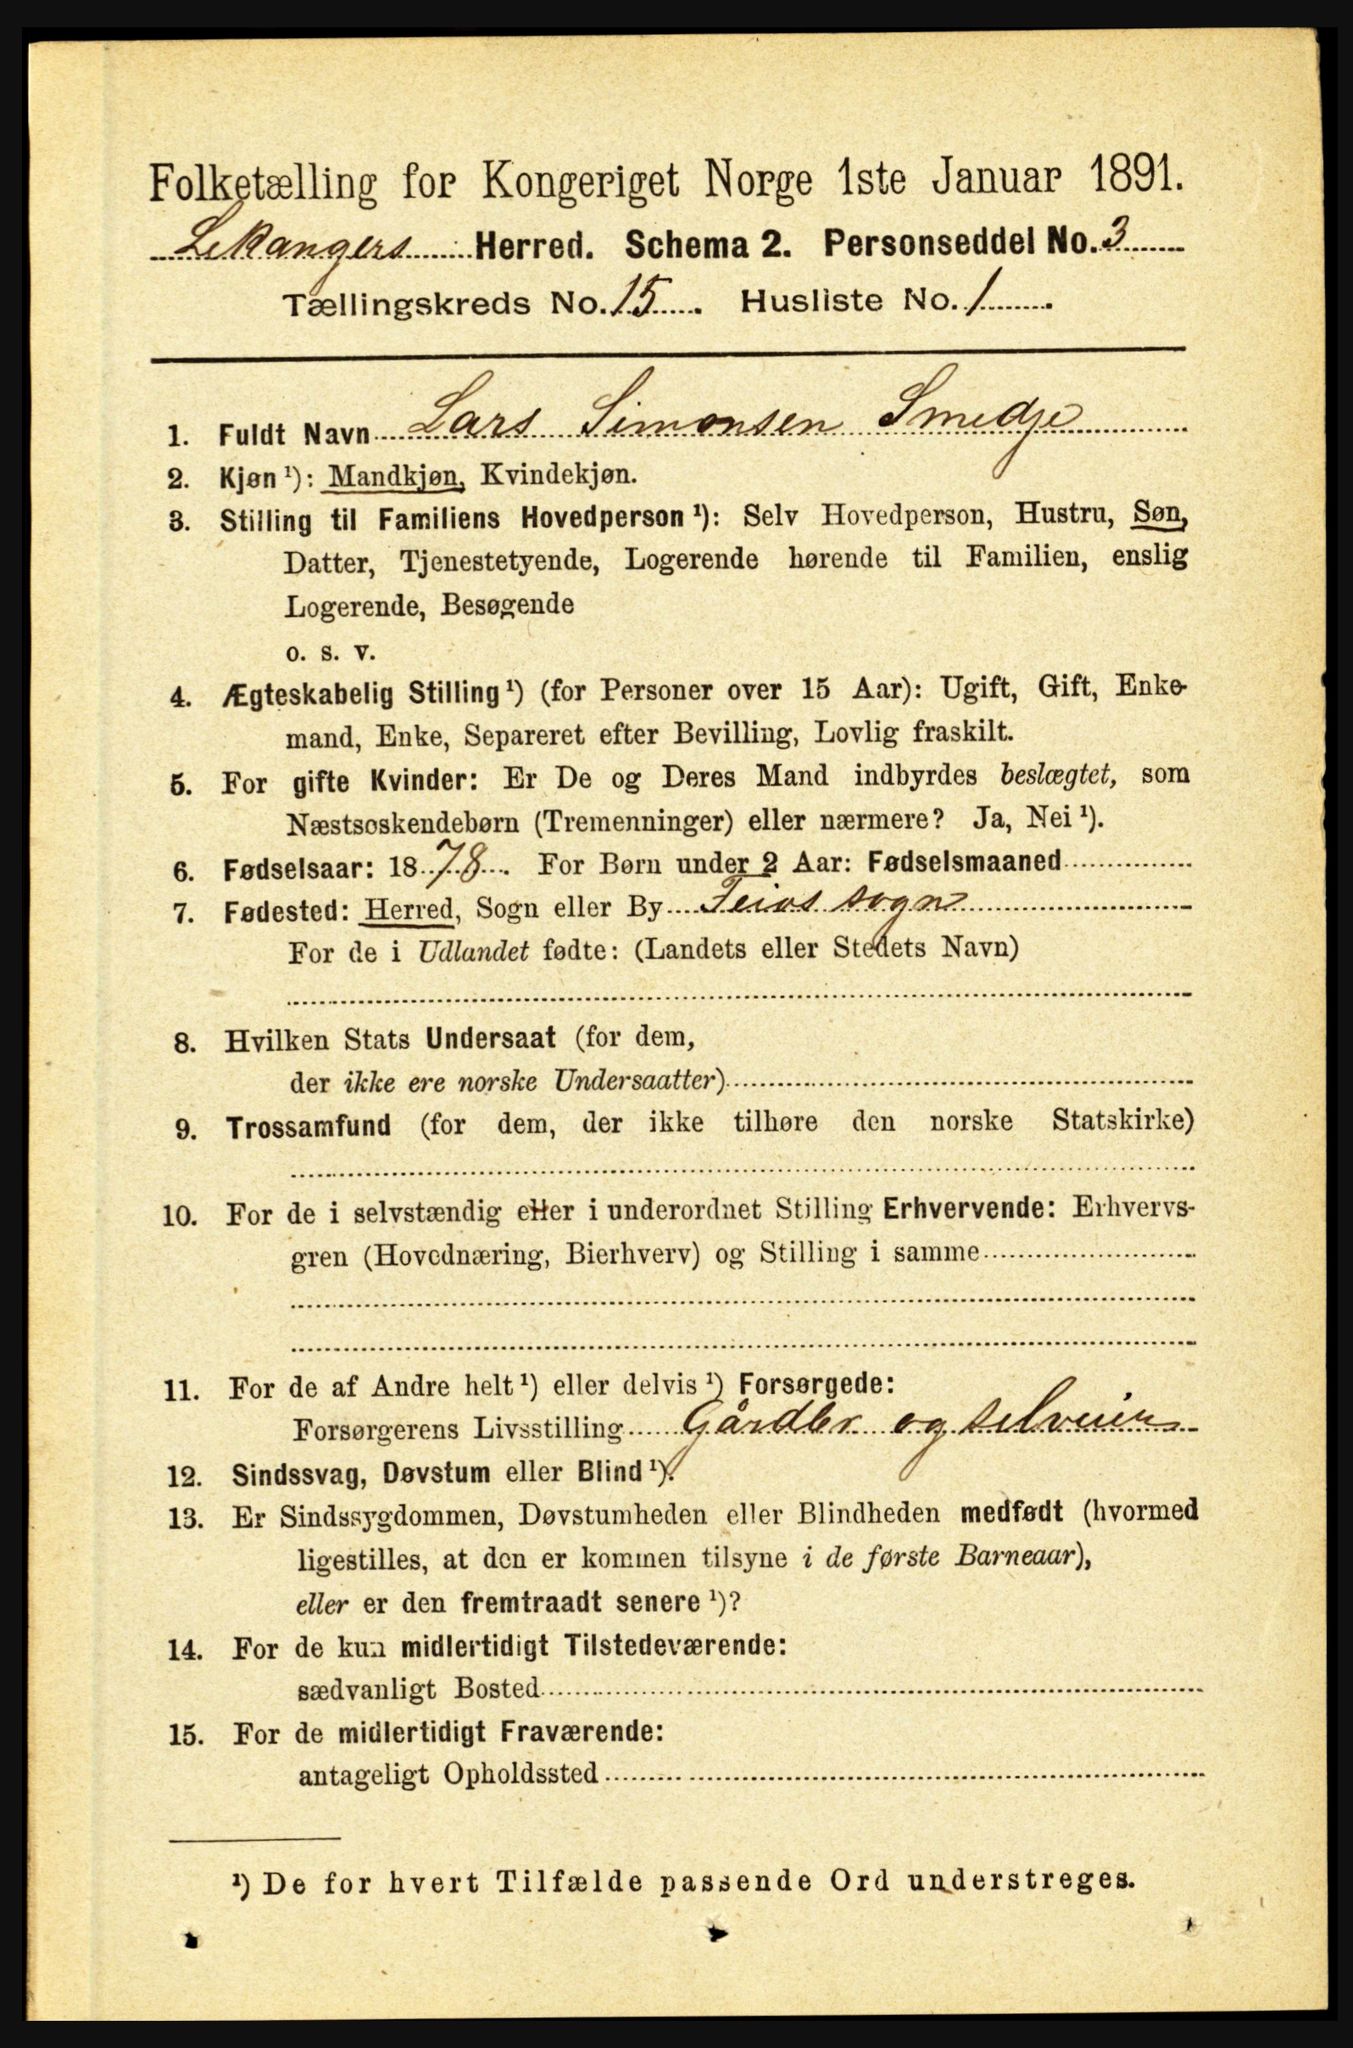 Folketælling for Kongeriget Norge 1ste Januar 1891.
Lekangers Herred. Schema 2. Personseddel No. 3
Tællingskreds No. 15. Husliste No. 1.
1. Fuldt Navn Lars Simonsen Smedje
2. Kjøn ¹): Mandkjøn, Kvindekjøn.
3. Stilling til Familiens Hovedperson ¹): Selv Hovedperson, Hustru, Søn,
Datter, Tjenestetyende, Logerende hørende til Familien, enslig
Logerende, Besøgende
o. s. v.
4. Ægteskabelig Stilling ¹) (for Personer over 15 Aar): Ugift, Gift, Enke-
mand, Enke, Separeret efter Bevilling, Lovlig fraskilt.
5. For gifte Kvinder: Er De og Deres Mand indbyrdes beslægtet, som
Næstsøskendebørn (Tremenninger) eller nærmere? Ja, Nei ¹).
6. Fødselsaar: 1878. For Børn under 2 Aar: Fødselsmaaned
7. Fødested: Herred, Sogn eller By Feios sogn
For de i Udlandet fødte: (Landets eller Stedets Navn)
8. Hvilken Stats Undersaat (for dem,
der ikke ere norske Undersaatter)
9. Trossamfund (for dem, der ikke tilhøre den norske Statskirke)
10. For de i selvstændig eller i underordnet Stilling Erhvervende: Erhvervs-
gren (Hovednæring, Bierhverv) og Stilling i samme
11. For de af Andre helt ¹) eller delvis ¹) Forsørgede:
Forsørgerens Livsstilling Gårdbr og selveier
12. Sindssvag, Døvstum eller Blind ¹).
13. Er Sindssygdommen, Døvstumheden eller Blindheden medfødt (hvormed
ligestilles, at den er kommen tilsyne i de første Barneaar),
eller er den fremtraadt senere ¹)?
14. For de kun midlertidigt Tilstedeværende:
sædvanligt Bosted
15. For de midlertidigt Fraværende:
antageligt Opholdssted
¹) De for hvert Tilfælde passende Ord understreges.